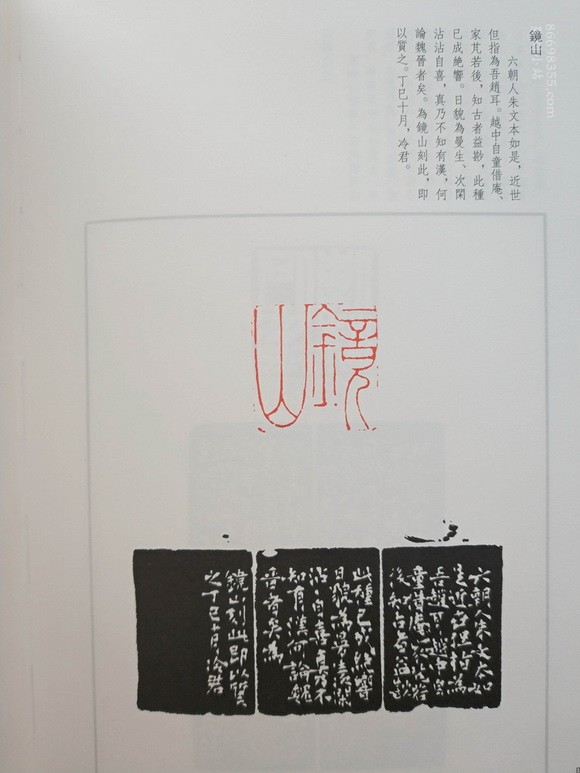 鏡山
六朝人朱文本如是，近世
但指為吾趙耳。越中自童借庵、
家芃若後，知古者益尠，此種
已成絶響。日貌為曼生、次閑
沾沾自喜，真乃不知有漢，何
論魏晉者矣。為鏡山刻此，即
以質之。丁巳十月，冷君。
鏡山
六朝人朱文本如
是近世但指為
吾趙耳越中自
童借庵家芃若
後知古者益尠
此種已成絶響
日貌為曼生次閑
沾沾自喜真乃不
知有漢何論魏
晉者矣為
鏡山刻此即以質
之丁巳十月冷君
86698355.com